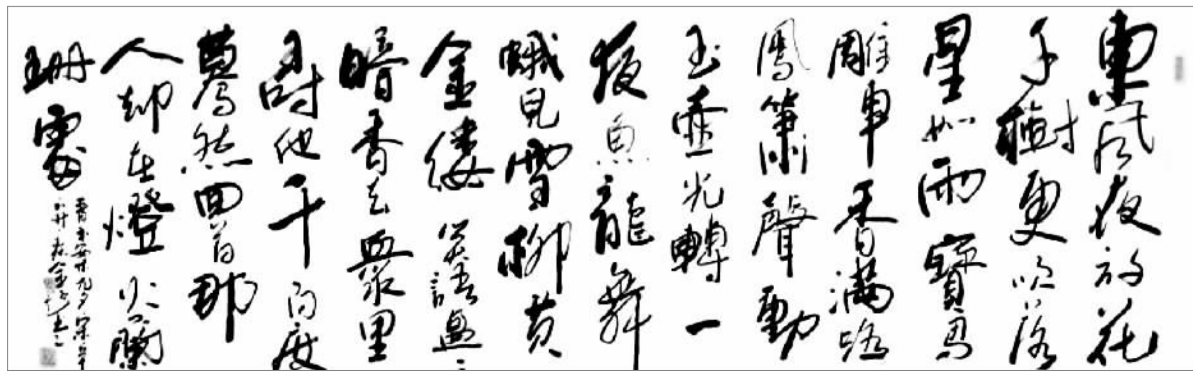 東風夜放花
千樹更吹落
星如雨寶馬
雕車香滿路
鳳簫聲動
玉壺光轉一
夜魚龍舞
蛾兒雪柳黃
金縷笑語盈〻
暗香去眾里
尋他千百度
驀然回首那
人却在燈火闌
珊處
青玉案元夕宋辛
弃疾